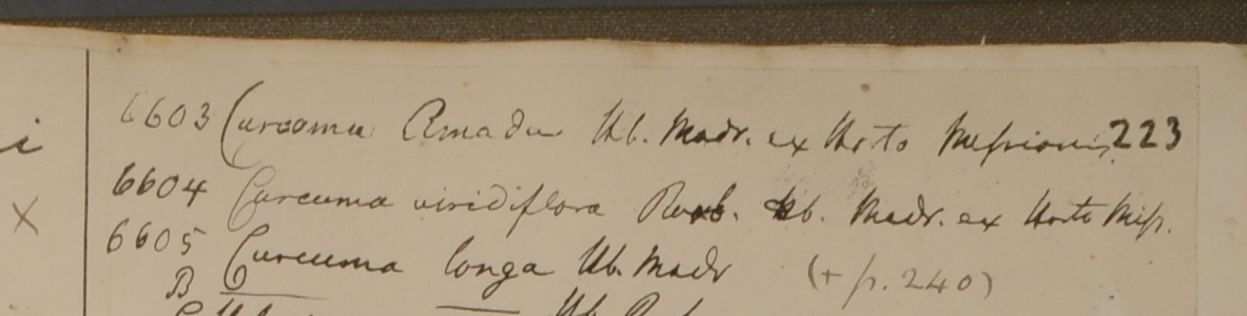 6603 Curcuma Amada Hb. Madr. ex Horto Missionis 223
6604 Curcuma viridiflora Roxb. Hb. Madr. ex Horto Miss.
6605 Curcuma longa Hb. Madr (+ p. 240)
B